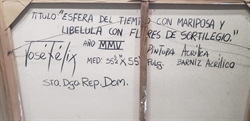 TITULO: "ESFERA DEL TIEMPO CON MARIPOSA Y
LIBELULA CON FLORES DE SORTILEGIO"
José Félix AÑO MMV PINTURA ACRILICA
MED: 35½" X 55" Pulg. BARNIZ ACRILICO
STO. Dgo Rep. Dom.